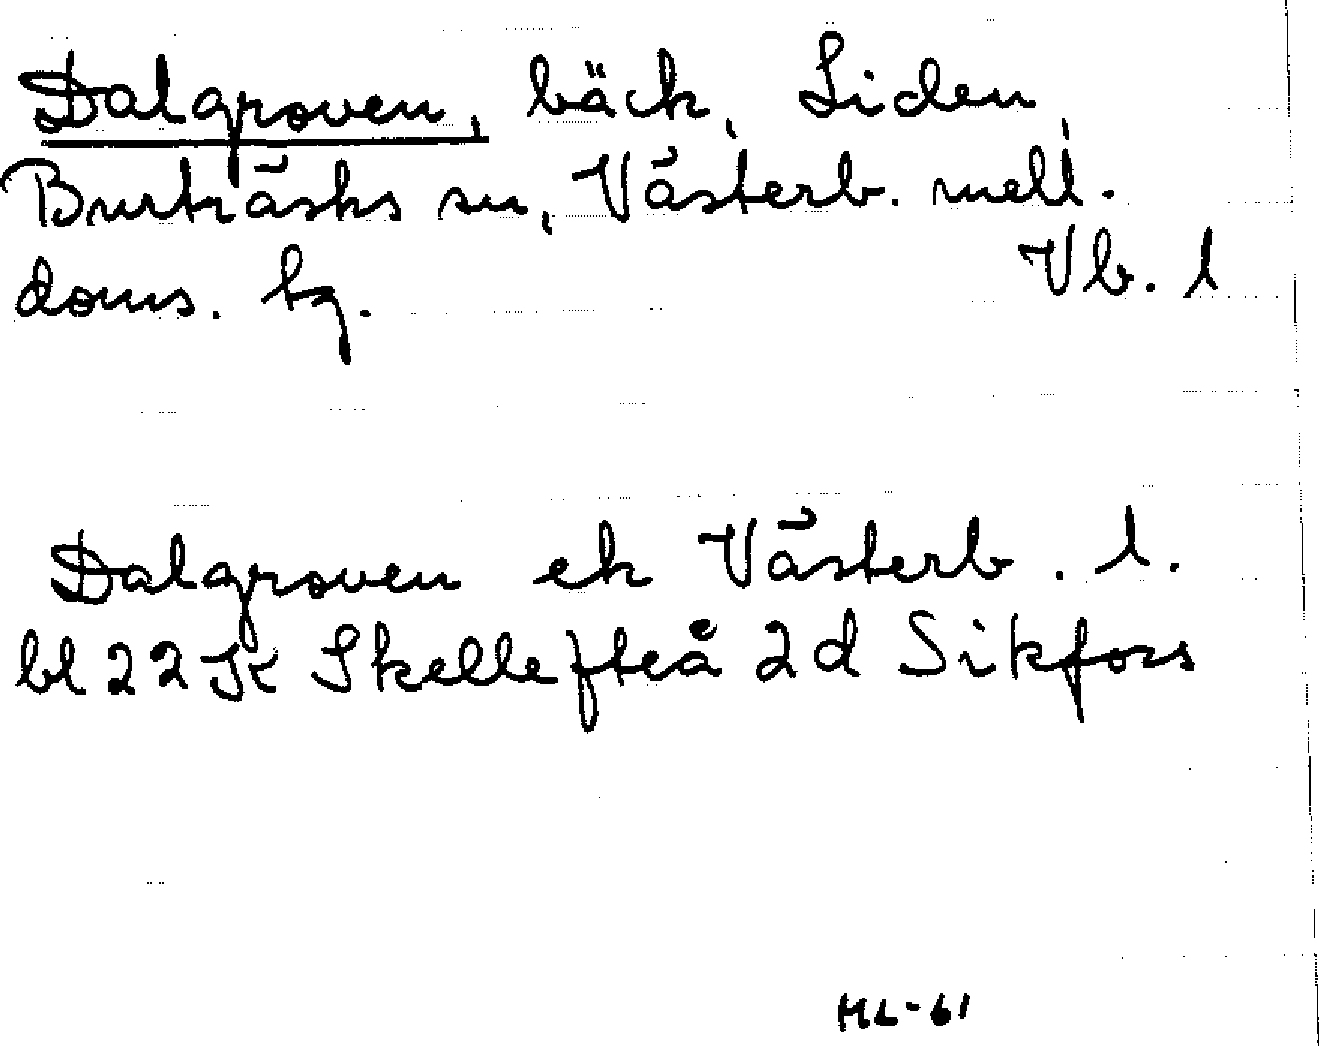 Dalgroven, bäck, Liden,
Burträsks sn, Västerb. mell.
doms. hg.
Vb. l
Dalgroven ek Västerb. l.
bl 22 K Skellefteå 2d Sikfors
ML-61